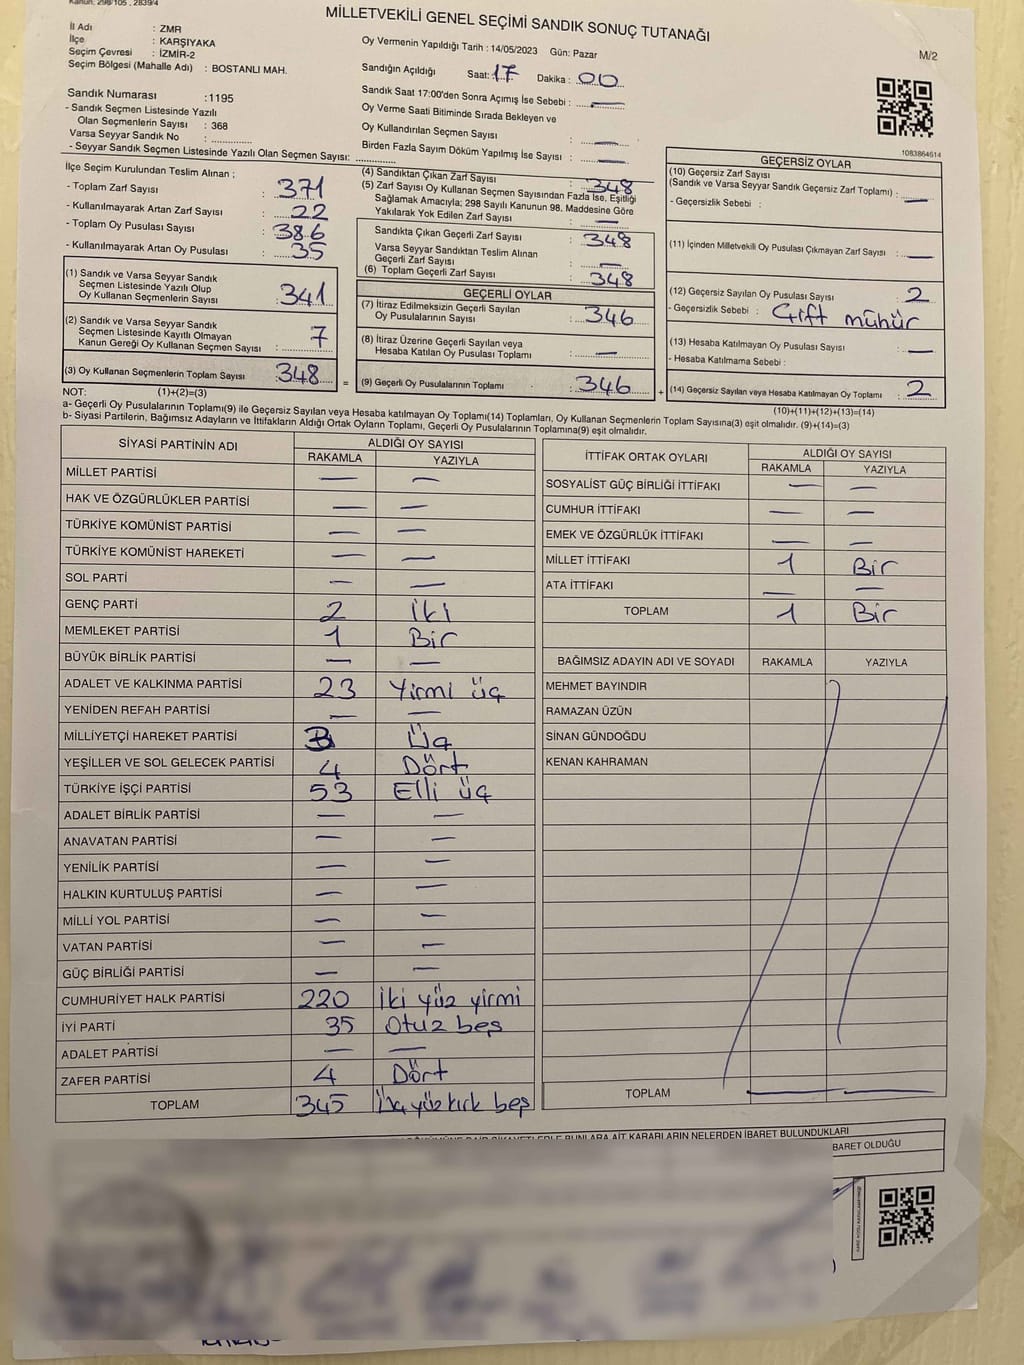 Kanun: 298/105 , 2839/4
MİLLETVEKİLİ GENEL SEÇİMİ SANDIK SONUÇ TUTANAĞI
M/2
İl Adı : ZMR
İlçe : KARŞIYAKA
Seçim Çevresi : İZMİR-2
Seçim Bölgesi (Mahalle Adı) : BOSTANLI MAH.
Oy Vermenin Yapıldığı Tarih : 14/05/2023 Gün: Pazar
Sandığın Açıldığı Saat: 17 Dakika : 00
Sandık Saat 17:00'den Sonra Açımış İse Sebebi : —
Oy Verme Saati Bitiminde Sırada Bekleyen ve
Oy Kullandırılan Seçmen Sayısı : —
Birden Fazla Sayım Döküm Yapılmış İse Sayısı : —
Sandık Numarası :1195
- Sandık Seçmen Listesinde Yazılı
Olan Seçmenlerin Sayısı : 368
Varsa Seyyar Sandık No :
- Seyyar Sandık Seçmen Listesinde Yazılı Olan Seçmen Sayısı:
1083864614
İlçe Seçim Kurulundan Teslim Alınan ;
- Toplam Zarf Sayısı : 371
- Kullanılmayarak Artan Zarf Sayısı : 22
- Toplam Oy Pusulası Sayısı : 386
- Kullanılmayarak Artan Oy Pusulası : 35
(1) Sandık ve Varsa Seyyar Sandık
Seçmen Listesinde Yazılı Olup
Oy Kullanan Seçmenlerin Sayısı : 341
(2) Sandık ve Varsa Seyyar Sandık
Seçmen Listesinde Kayıtlı Olmayan
Kanun Gereği Oy Kullanan Seçmen Sayısı : 7
(3) Oy Kullanan Seçmenlerin Toplam Sayısı : 348 =
(4) Sandıktan Çıkan Zarf Sayısı : 348
(5) Zarf Sayısı Oy Kullanan Seçmen Sayısından Fazla İse, Eşitliği
Sağlamak Amacıyla; 298 Sayılı Kanunun 98. Maddesine Göre
Yakılarak Yok Edilen Zarf Sayısı : —
Sandıkta Çıkan Geçerli Zarf Sayısı : 348
Varsa Seyyar Sandıktan Teslim Alınan
Geçerli Zarf Sayısı : —
(6) Toplam Geçerli Zarf Sayısı : 348
GEÇERLİ OYLAR
(7) İtiraz Edilmeksizin Geçerli Sayılan
Oy Pusulalarının Sayısı : 346
(8) İtiraz Üzerine Geçerli Sayılan veya
Hesaba Katılan Oy Pusulası Toplamı : —
(9) Geçerli Oy Pusulalarının Toplamı : 346 +
GEÇERSİZ OYLAR
(10) Geçersiz Zarf Sayısı
(Sandık ve Varsa Seyyar Sandık Geçersiz Zarf Toplamı) : —
- Geçersizlik Sebebi :
(11) İçinden Milletvekili Oy Pusulası Çıkmayan Zarf Sayısı : —
(12) Geçersiz Sayılan Oy Pusulası Sayısı : 2
- Geçersizlik Sebebi : Çift mühür
(13) Hesaba Katılmayan Oy Pusulası Sayısı : —
- Hesaba Katılmama Sebebi :
(14) Geçersiz Sayılan veya Hesaba Katılmayan Oy Toplamı : 2
NOT: (1)+(2)=(3) (10)+(11)+(12)+(13)=(14)
a- Geçerli Oy Pusulalarının Toplamı(9) ile Geçersiz Sayılan veya Hesaba katılmayan Oy Toplamı(14) Toplamları, Oy Kullanan Seçmenlerin Toplam Sayısına(3) eşit olmalıdır. (9)+(14)=(3)
b- Siyasi Partilerin, Bağımsız Adayların ve İttifakların Aldığı Ortak Oyların Toplamı, Geçerli Oy Pusulalarının Toplamına(9) eşit olmalıdır.
SİYASİ PARTİNİN ADI ALDIĞI OY SAYISI
RAKAMLA YAZIYLA
MİLLET PARTİSİ — —
HAK VE ÖZGÜRLÜKLER PARTİSİ — —
TÜRKİYE KOMÜNİST PARTİSİ — —
TÜRKİYE KOMÜNİST HAREKETİ — —
SOL PARTİ — —
GENÇ PARTİ 2 İki
MEMLEKET PARTİSİ 1 Bir
BÜYÜK BİRLİK PARTİSİ — —
ADALET VE KALKINMA PARTİSİ 23 Yirmi üç
YENİDEN REFAH PARTİSİ — —
MİLLİYETÇİ HAREKET PARTİSİ 3 Üç
YEŞİLLER VE SOL GELECEK PARTİSİ 4 Dört
TÜRKİYE İŞÇİ PARTİSİ 53 Elli üç
ADALET BİRLİK PARTİSİ — —
ANAVATAN PARTİSİ — —
YENİLİK PARTİSİ — —
HALKIN KURTULUŞ PARTİSİ — —
MİLLİ YOL PARTİSİ — —
VATAN PARTİSİ — —
GÜÇ BİRLİĞİ PARTİSİ — —
CUMHURİYET HALK PARTİSİ 220 İki yüz yirmi
İYİ PARTİ 35 Otuz beş
ADALET PARTİSİ — —
ZAFER PARTİSİ 4 Dört
TOPLAM 345 Üç yüz kırk beş
İTTİFAK ORTAK OYLARI ALDIĞI OY SAYISI
RAKAMLA YAZIYLA
SOSYALİST GÜÇ BİRLİĞİ İTTİFAKI — —
CUMHUR İTTİFAKI — —
EMEK VE ÖZGÜRLÜK İTTİFAKI — —
MİLLET İTTİFAKI 1 Bir
ATA İTTİFAKI — —
TOPLAM 1 Bir
BAĞIMSIZ ADAYIN ADI VE SOYADI RAKAMLA YAZIYLA
MEHMET BAYINDIR
RAMAZAN ÜZÜN
SİNAN GÜNDOĞDU
KENAN KAHRAMAN
TOPLAM — —
KARARLARIN NELERDEN İBARET BULUNDUKLARI
İBARET OLDUĞU